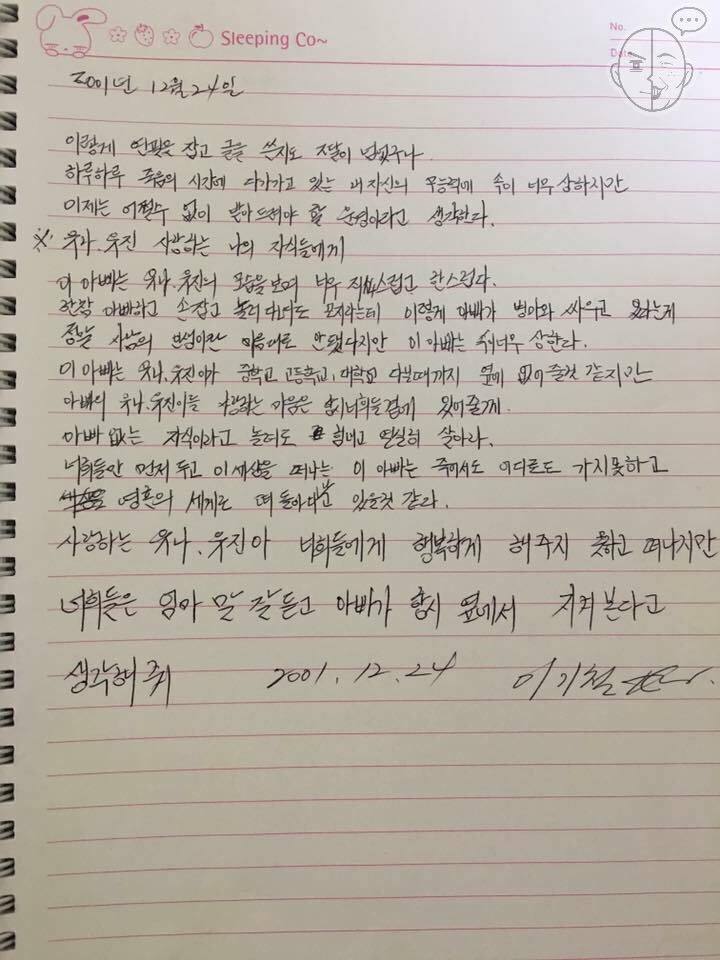 Sleeping Co~
No.
Date
2001년 12월 24일
이렇게 연필을 잡고 글을 쓴지도 3달이 넘었구나
하루하루 죽음의 시간에 다가가고 있는 내 자신의 무능력에 속이 너무 상하지만
이제는 어쩔수 없이 받아드려야 할 운명이라고 생각한다.
※ 유나.유진 사랑하는 나의 자식들에게
이 아빠는 유나.유진의 모습을 보며 너무 자랑스럽고 한스럽다.
한참 아빠하고 손잡고 놀러 다녀도 모자라는데 이렇게 아빠가 병마와 싸우고 있다는게
정말 사람의 인생이란 마음대로 안됀다지만 이 아빠는 속이 너무 상한다.
이 아빠는 유나.유진이가 중학교 고등학교.대학교 다닐때까지 옆에 없어줄것 같지만
아빠의 유나.유진이를 사랑하는 마음은 항시 너희들 곁에 있어 줄게.
아빠 없는 자식이라고 놀려도 힘내고 열심히 살아라.
너희들만 먼저 두고 이 세상을 떠나는 이 아빠는 죽어서도 어디로도 가지 못하고
영혼의 세계를 떠 돌아 다니고 있을것 같다.
사랑하는 유나.유진아 너희들에게 행복하게 해주지 못하고 떠나지만
너희들은 엄마 말 잘 듣고 아빠가 항시 옆에서 지켜 본다고
생각해 줘 2001.12.24 이기철